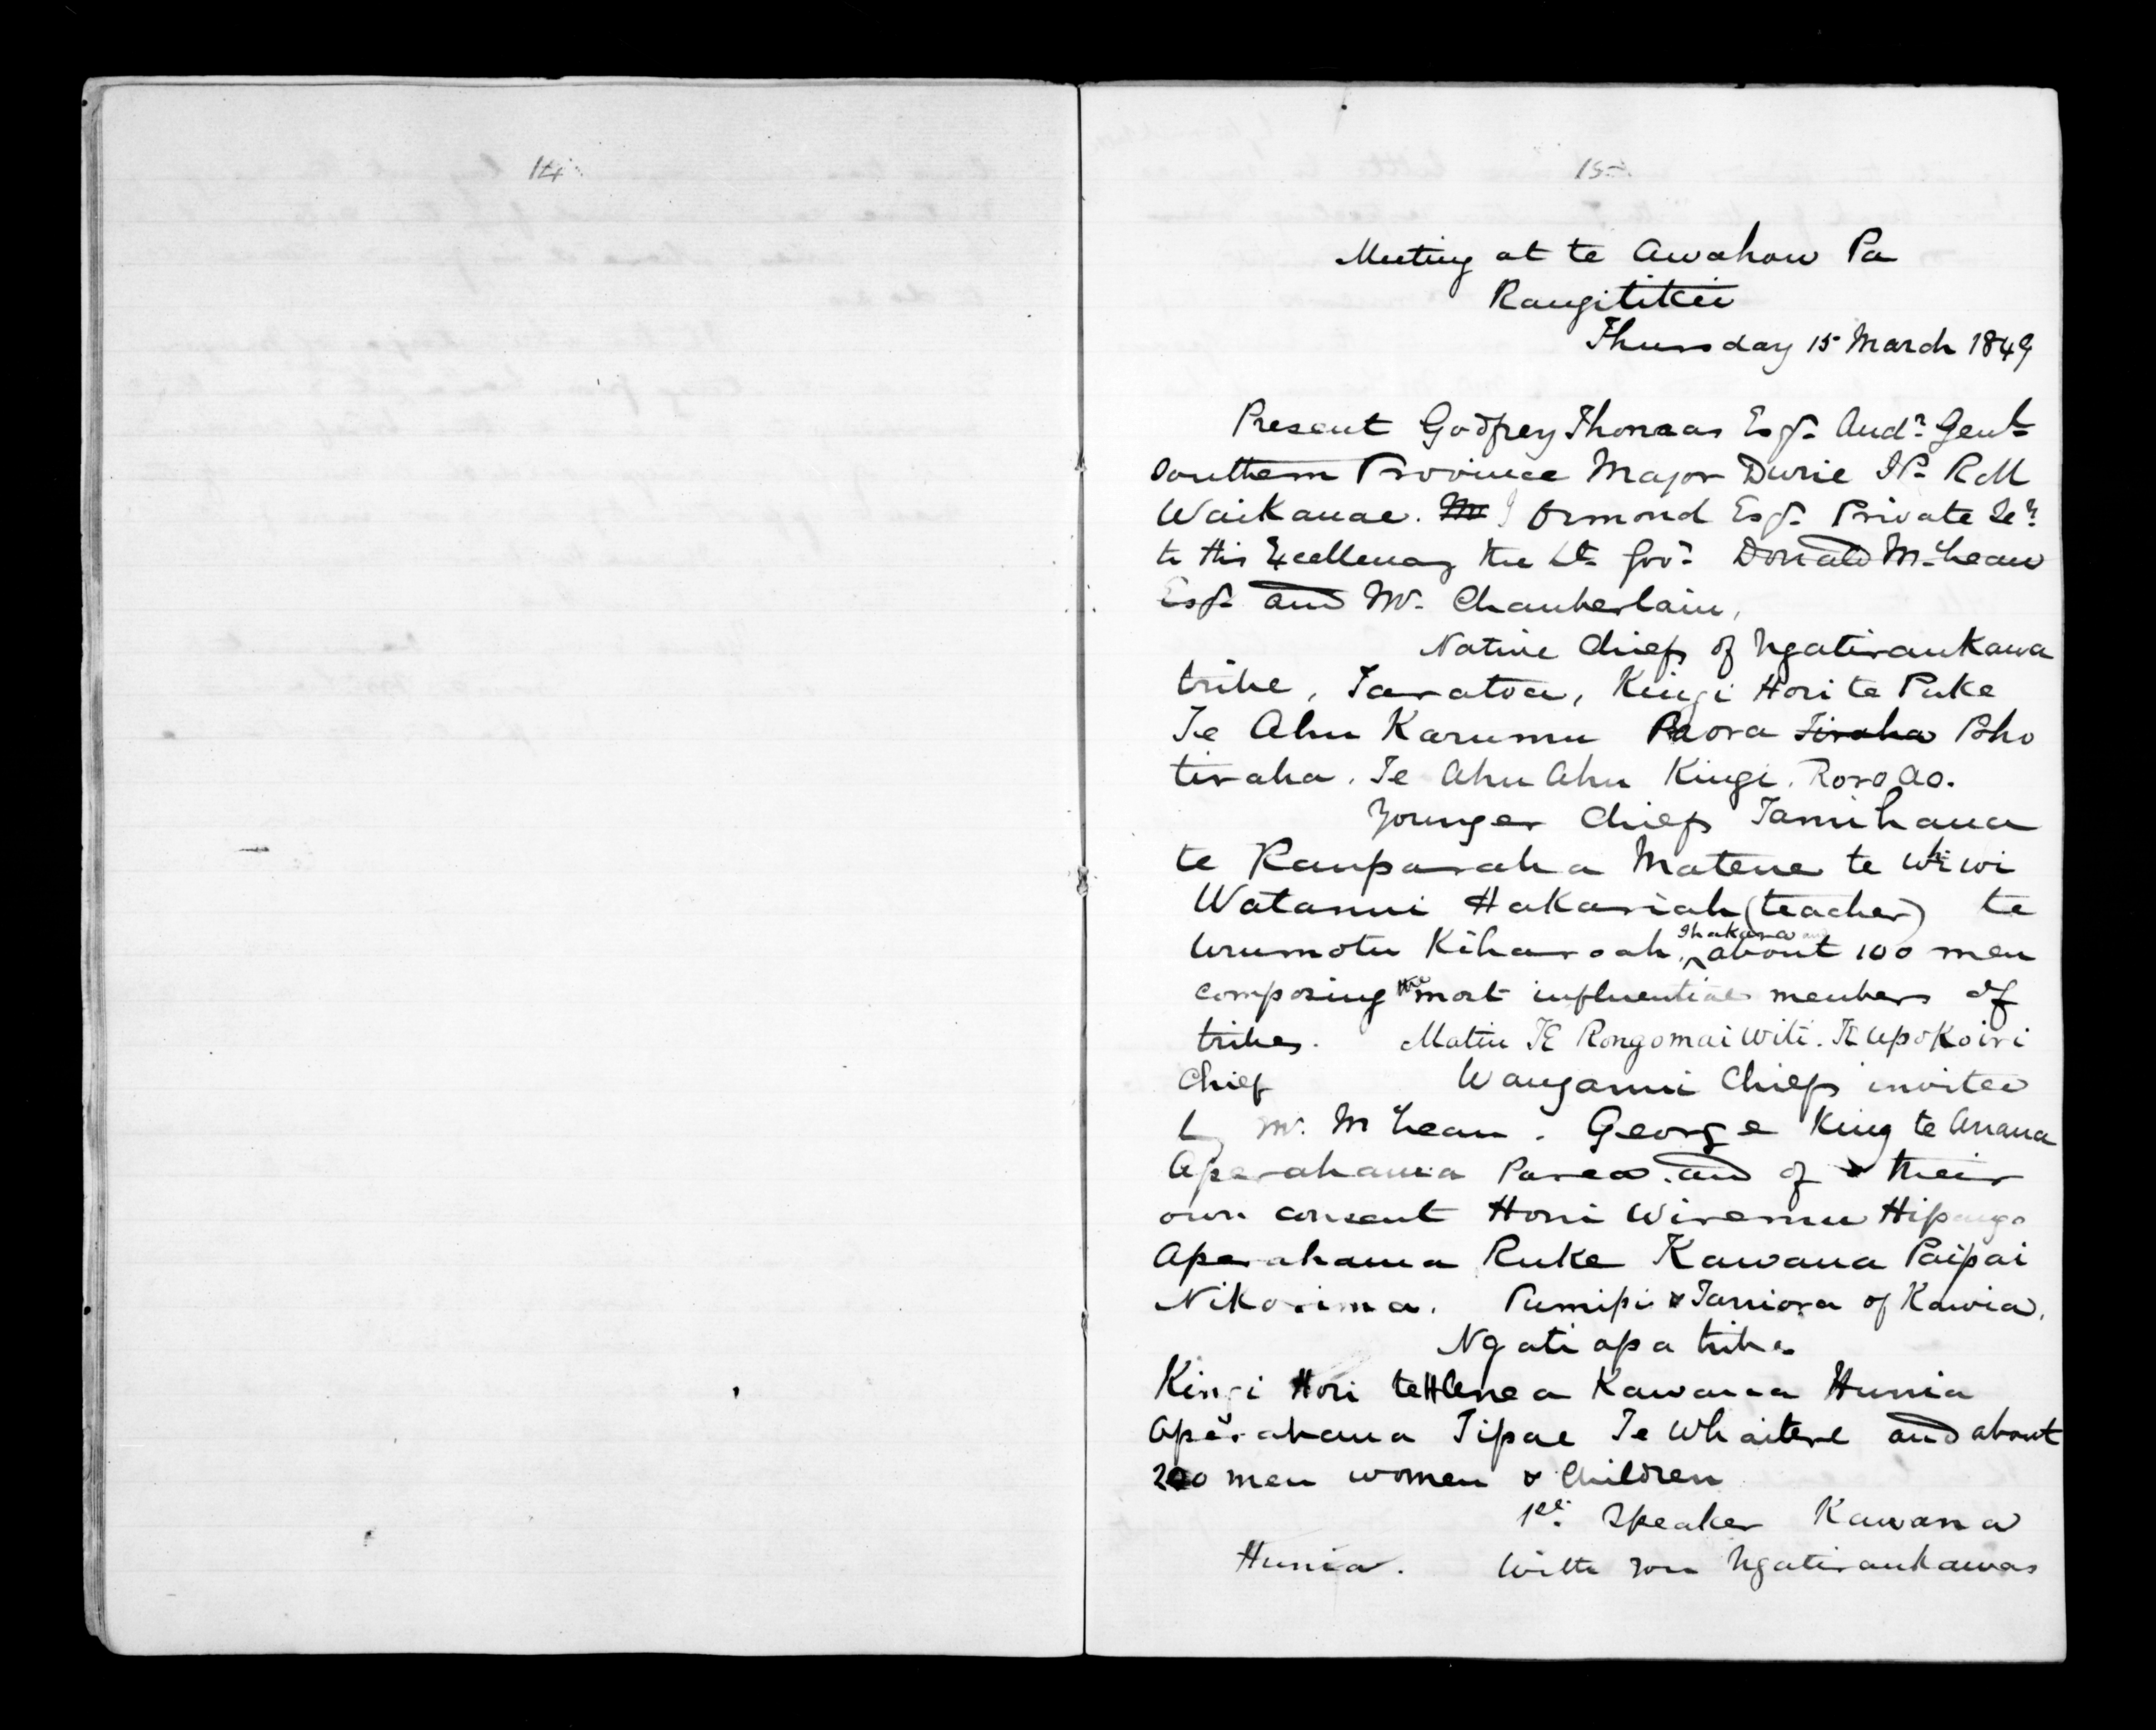 14
15
Meeting at te Awahou Pa
Rangitikei
Thursday 15 March 1849
Present Godfrey Thomas Esqr. Audr. Genl.
Southern Province Major Durie JP. RM
Waikanae. Mr J Ormond Esqr. Private Secy.
to His Excellency the Lt. Govr. Donald McLean
Esqr. and Mr. Chamberlain,
Native Chiefs of Ngatiraukawa
tribe, Taratoa, Kingi Hori te Puke
Te Ahu Karumu Paora Tiraha Poho
tiraha. Te Ahu Ahu Kingi. Roro Ao.
Younger Chiefs Tamihana
te Rauparaha Matene te Wiwi
Watanui Hakariah (teacher) te
Urumotu Kiharoah, Ihakara and
about 100 men
composing the most influential members of
tribes. Matiu TE Rongomai Witi. TE Upokoiri
Chief Wanganui Chiefs invited
by Mr. McLean. George King te Anaua
Aperahama Parea. and of their
own consent Honi Wiremu Hipango
Aperahama Ruke Kawana Paipai
Nikorima. Pumipi & Taniora of Kawia.
Ngatiapa tribe
Kingi Hori te Hanea Kawana Hunia
Aperahama Tipae Te Whaitere and about
200 men women & Children
1st. Speaker Kawana
Hunia. With you Ngatiraukawas